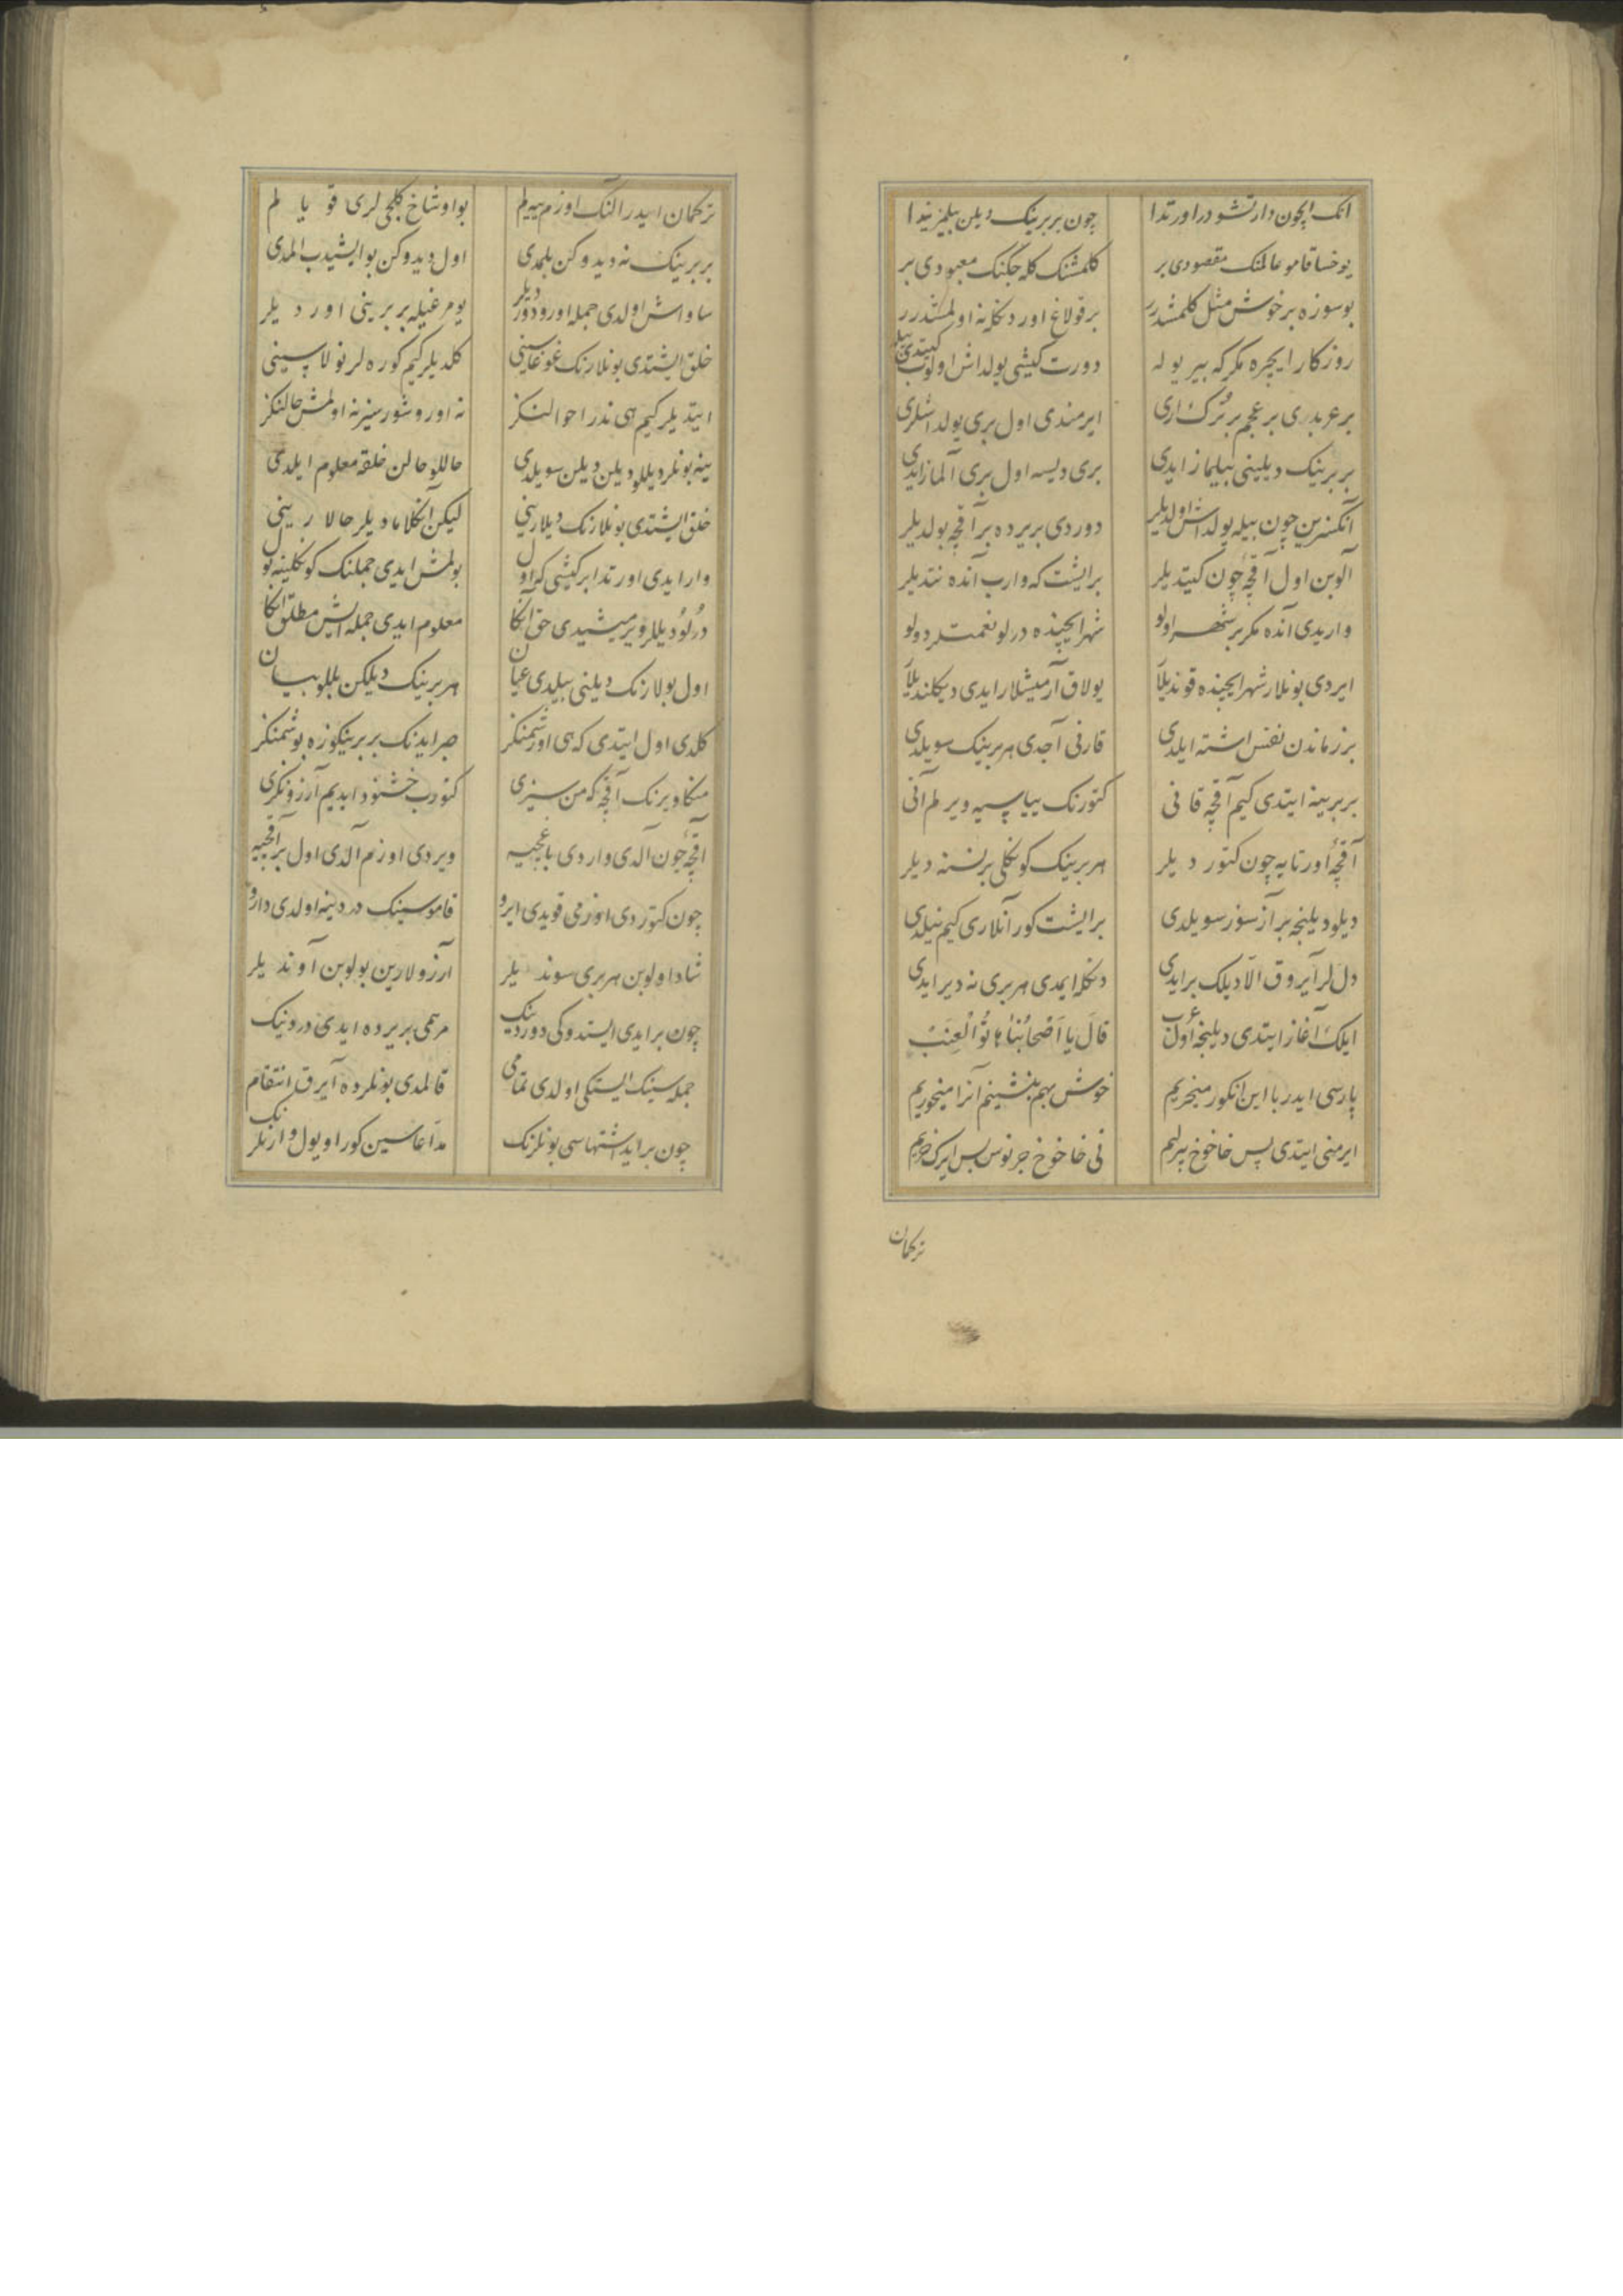 انک ایچون دارتشودر اورتدا چون بربرینک دیلن بیلمز یندا
یوخسا قامو عالمنک مقصودی بر کلمشنک کله جکنک معبودی بر
بوسوزه بر خوش مثل کلمشدرر بر قولاغ اور دنکله نه اولمشدرر
روزکار ایچره مکر که بیر یولہ دورت کیشی یولداش اولوب کیتدی بیله
بر عربدی بر عجم بر ترک اری ایرمندی اول بری یولداشلری
بربرینک دیلینی بیلماز ایدی بری دیسه اول بری آلماز ایدی
آنکسزین چون بیله یولداش اولدیلر دوردی بریرده بر آقچه بولدیلر
آلوبن اول آقچه چون کیتدیلر بر ایشت که وارب آنده نتدیلر
واریدی آنده مکر بر شهر اولو شهر ایچنده درلو نعمتلر دولو
ایردی بونلار شهر ایچنده قوندیلا یولاق آرمیشلار ایدی دیکلندیلا
بر زماندن نفس اشته ایلدی قارنی آجدی هر برینک سویلدی
بربرینه ایتدی کیم آقچه قانی کتورنک ییاسیه ویرلم آنی
آقچۀ اورتایه چون کتوردیلر هر برینک کونکلی بر نسنه دیلر
دیلو دیلنجه بر آز سوز سویلدی بر ایشت کور آنلاری کیم نیلدی
دل لر آیروق الا دیلک بر ایدی دنکله ایمدی هر بری نه دیر ایدی
ایلک آغاز ایتدی دیلنجه اول عرب قال یا اصحابنا نوا العنب
پارسی ایدر با این انکور میخریم خوش بهم بنشینم آنرا میخوریم
ایرمنی ایتدی پس خاخوخ بیرلیم نی خاخوخ جرنوس بس ایرک خریم
ترکمان
ترکمان ایدر النک اوزم ییه لم بو اوشاخ کلجی لری قویا لم
بربرینک نه دیدوکن بلمدی اول دیدوکن بو ایشیدب المدی
ساواش اولدی جمله اورو دوردیلر یومرغیله بربرینی اوردیلر
خلق ایشتدی بونلارنک غوغاسینی کلدیلر کیم کوره لر نولاسینی
ایتدیلر کیم هی ندر احوالنکز نه اورو شورسیز نه اولمش حالنکز
ینه بونلر دیللو دیلن دیلن سویلدی حاللو حالن خلقه معلوم ایلدی
خلق ایشتدی بونلارنک دیلارینی لیکن آنکلامادیلر حالارینی
وار ایدی اورتدا بر کیشی که اول بولمش ایدی جملنک کونکلینه یول
درلو دیللر ویرمیشیدی حق آنکا معلوم ایدی جمله ایش مطلق انکا
اول بولارنک دیلنی بیلدی عیان هر برینک دیلکن بللو بیان
کلدی اول ایتدی که هی اورشمنکز صبر ایدنک بربرینکوزه بوشمنکز
منکا ویرنک آقچه که من سیزی کتورب خشنود ایدیم آرزونکزی
آقچۀ چون آلدی واردی باغچیه ویردی اوزم آلدی اول بر آقچییه
چون کتوردی اوزمی قویدی ایرو قاموسینک دردینه اولدی دارو
شاد اولوبن هر بری سوندیلر آرزولارین بولوبن آوندیلر
چون بر ایدی ایستدوکی دوردینک مرهمی بریرده ایدی دردینک
جمله سینک ایستکی اولدی تمامی قالمدی بونلرده آیرق انتقام
چون بر ایدی اشتهاسی بونلرنک مدعاسین کور اویول وارنلرنک